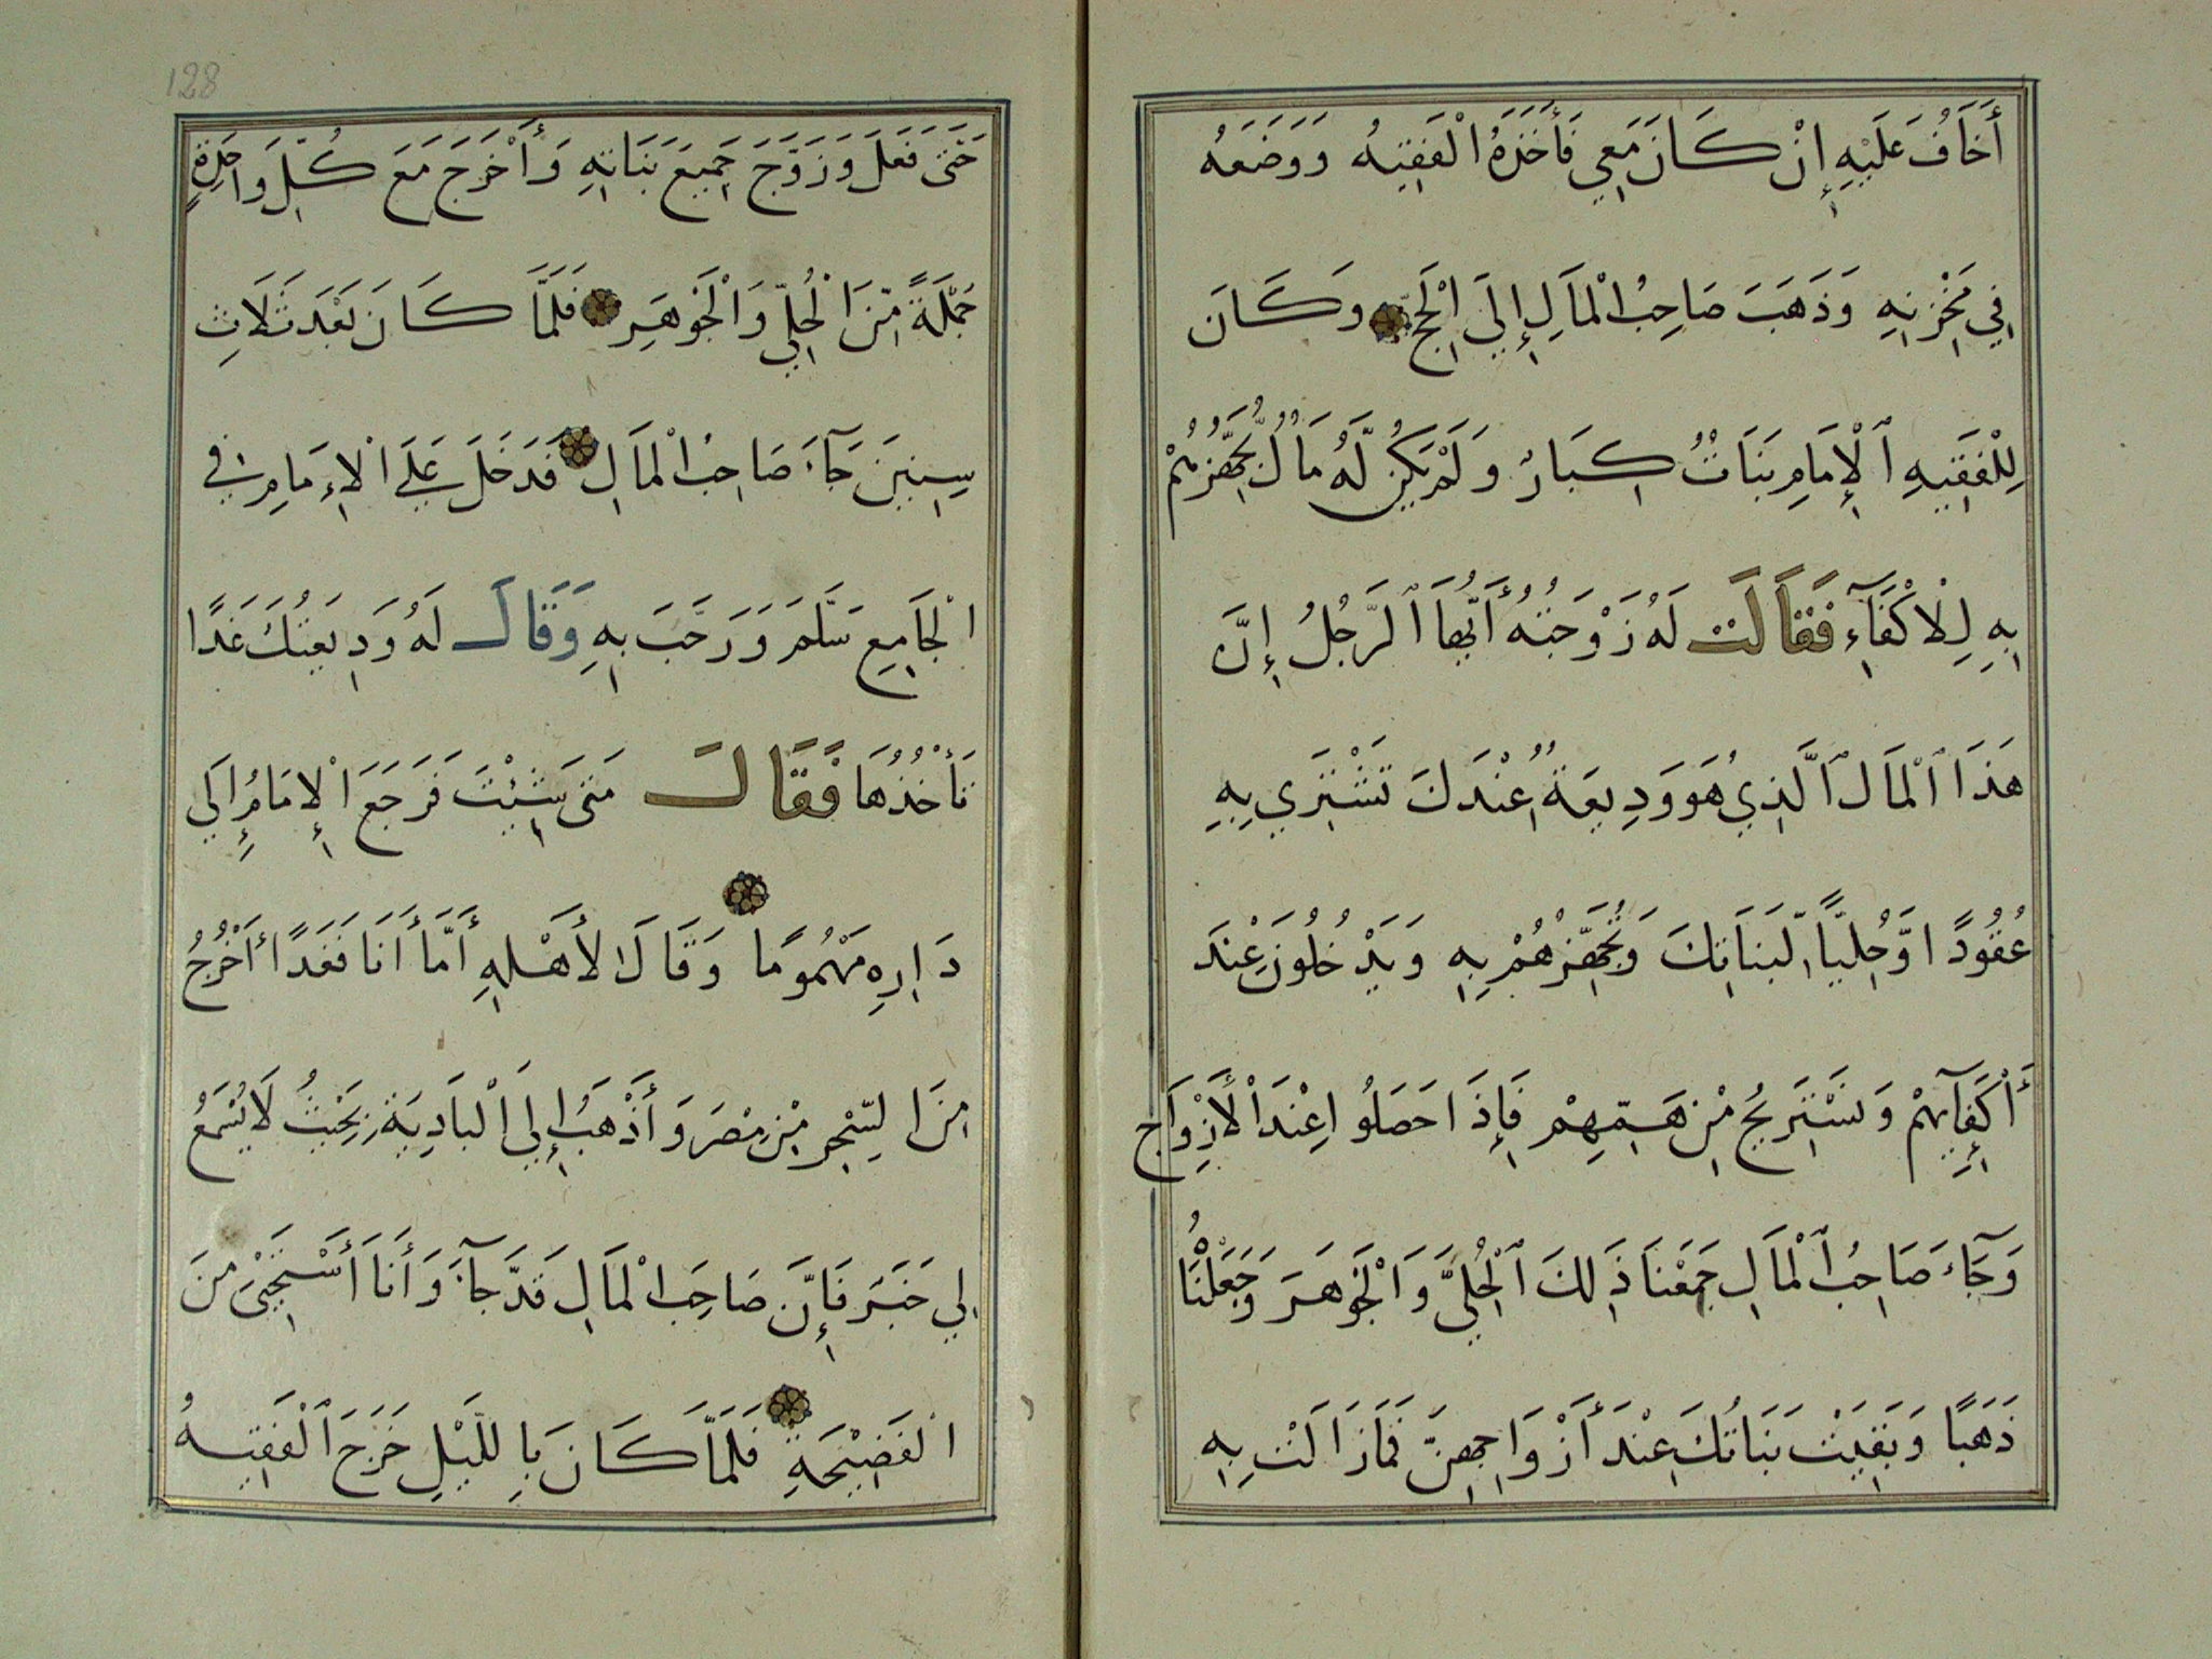 أَخَافُ عَلَيْهِ إِنْ كَانَ مَعِي فَأَخَذَهُ الْفَقِيهُ وَوَضَعَهُ
فِي مَخْزَنِهِ وَذَهَبَ صَاحِبُ الْمَالِ إِلَى الْحَجِّ وَكَانَ
لِلْفَقِيهِ ٱلْإِمَامِ بَنَاتٌ كِبَارٌ وَلَمْ يَكُنْ لَّهُ مَالٌ يُّجَهِّزُهُمْ
بِهِ لِلْاكْفَآءِ فَقَالَتْ لَهُ زَوْجَتُهُ أَيُّهَا ٱلرَّجُلُ إِنَّ
هَذَا ٱلْمَالَ ٱلَّذِي هُوَ وَدِيعَةٌ عِنْدَكَ تَشْتَرِي بِهِ
عُقُودًا وَّحُلِيًّا لِّبَنَاتِكَ وَتُجَهِّزُهُمْ بِهِ وَيَدْخُلُونَ عِنْدَ
أَكْفَآئِهِمْ وَنَسْتَرِيحُ مِنْ هَمِّهِمْ فَإِذَا حَصَلُوا عِنْدَ الْأَزْوَاجِ
وَجَآءَ صَاحِبُ ٱلْمَالِ جَمَعْنَا ذَلِكَ ٱلْحُلِيَّ وَالْجَوْهَرَ وَجَعَلْنَاهُ
ذَهَبًا وَبَقِيَتْ بَنَاتُكَ عِنْدَ أَزْوَاجِهِنَّ فَمَازَالَتْ بِهِ
128
حَتَّى فَعَلَ وَزَوَّجَ جَمِيعَ بَنَاتِهِ وَأَخْرَجَ مَعَ كُلِّ وَاحِدَةٍ
جُمْلَةً مِّنَ الْحُلِيِّ وَالْجَوْهَرِ فَلَمَّا كَانَ بَعْدَ ثَلَاثِ
سِنِينَ جَآءَ صَاحِبُ الْمَالِ فَدَخَلَ عَلَى الْاِمَامِ فِي
الْجَامِعِ سَلَّمَ وَرَحَّبَ بِهِ وَقَالَ لَهُ وَدِيعَتُكَ غَدًا
تَأْخُذُهَا فَقَالَ مَتَى شِئْتَ فَرَجَعَ الْإِمَامُ إِلَى
دَارِهِ مَهْمُومًا وَقَالَ لأَهْلِهِ أَمَّا أَنَا فَغَدًا أَخْرُجُ
مِنَ السِّجِرِ مِنْ مِصْرَ وَأَذْهَبُ إِلَى الْبَادِيَةِ بِحَيْثُ لَا يُسْمَعُ
لِي خَبَرَ فَإِنَّ صَاحِبَ الْمَالِ قَدْ جَآءَ وَأَنَا أَسْتَحْيِىْ مِنَ
الْفَضِيْحَةِ فَلَمَّا كَانَ بِاللَّيْلِ خَرَجَ ٱلْفَقِيهُ